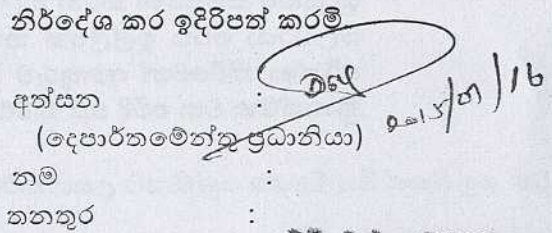 නිර්දේශ කර ඉදිරිපත් කරමි
අත්සන :
(දෙපාර්තමේන්තු ප්‍රධානියා)
නම :
තනතුර :